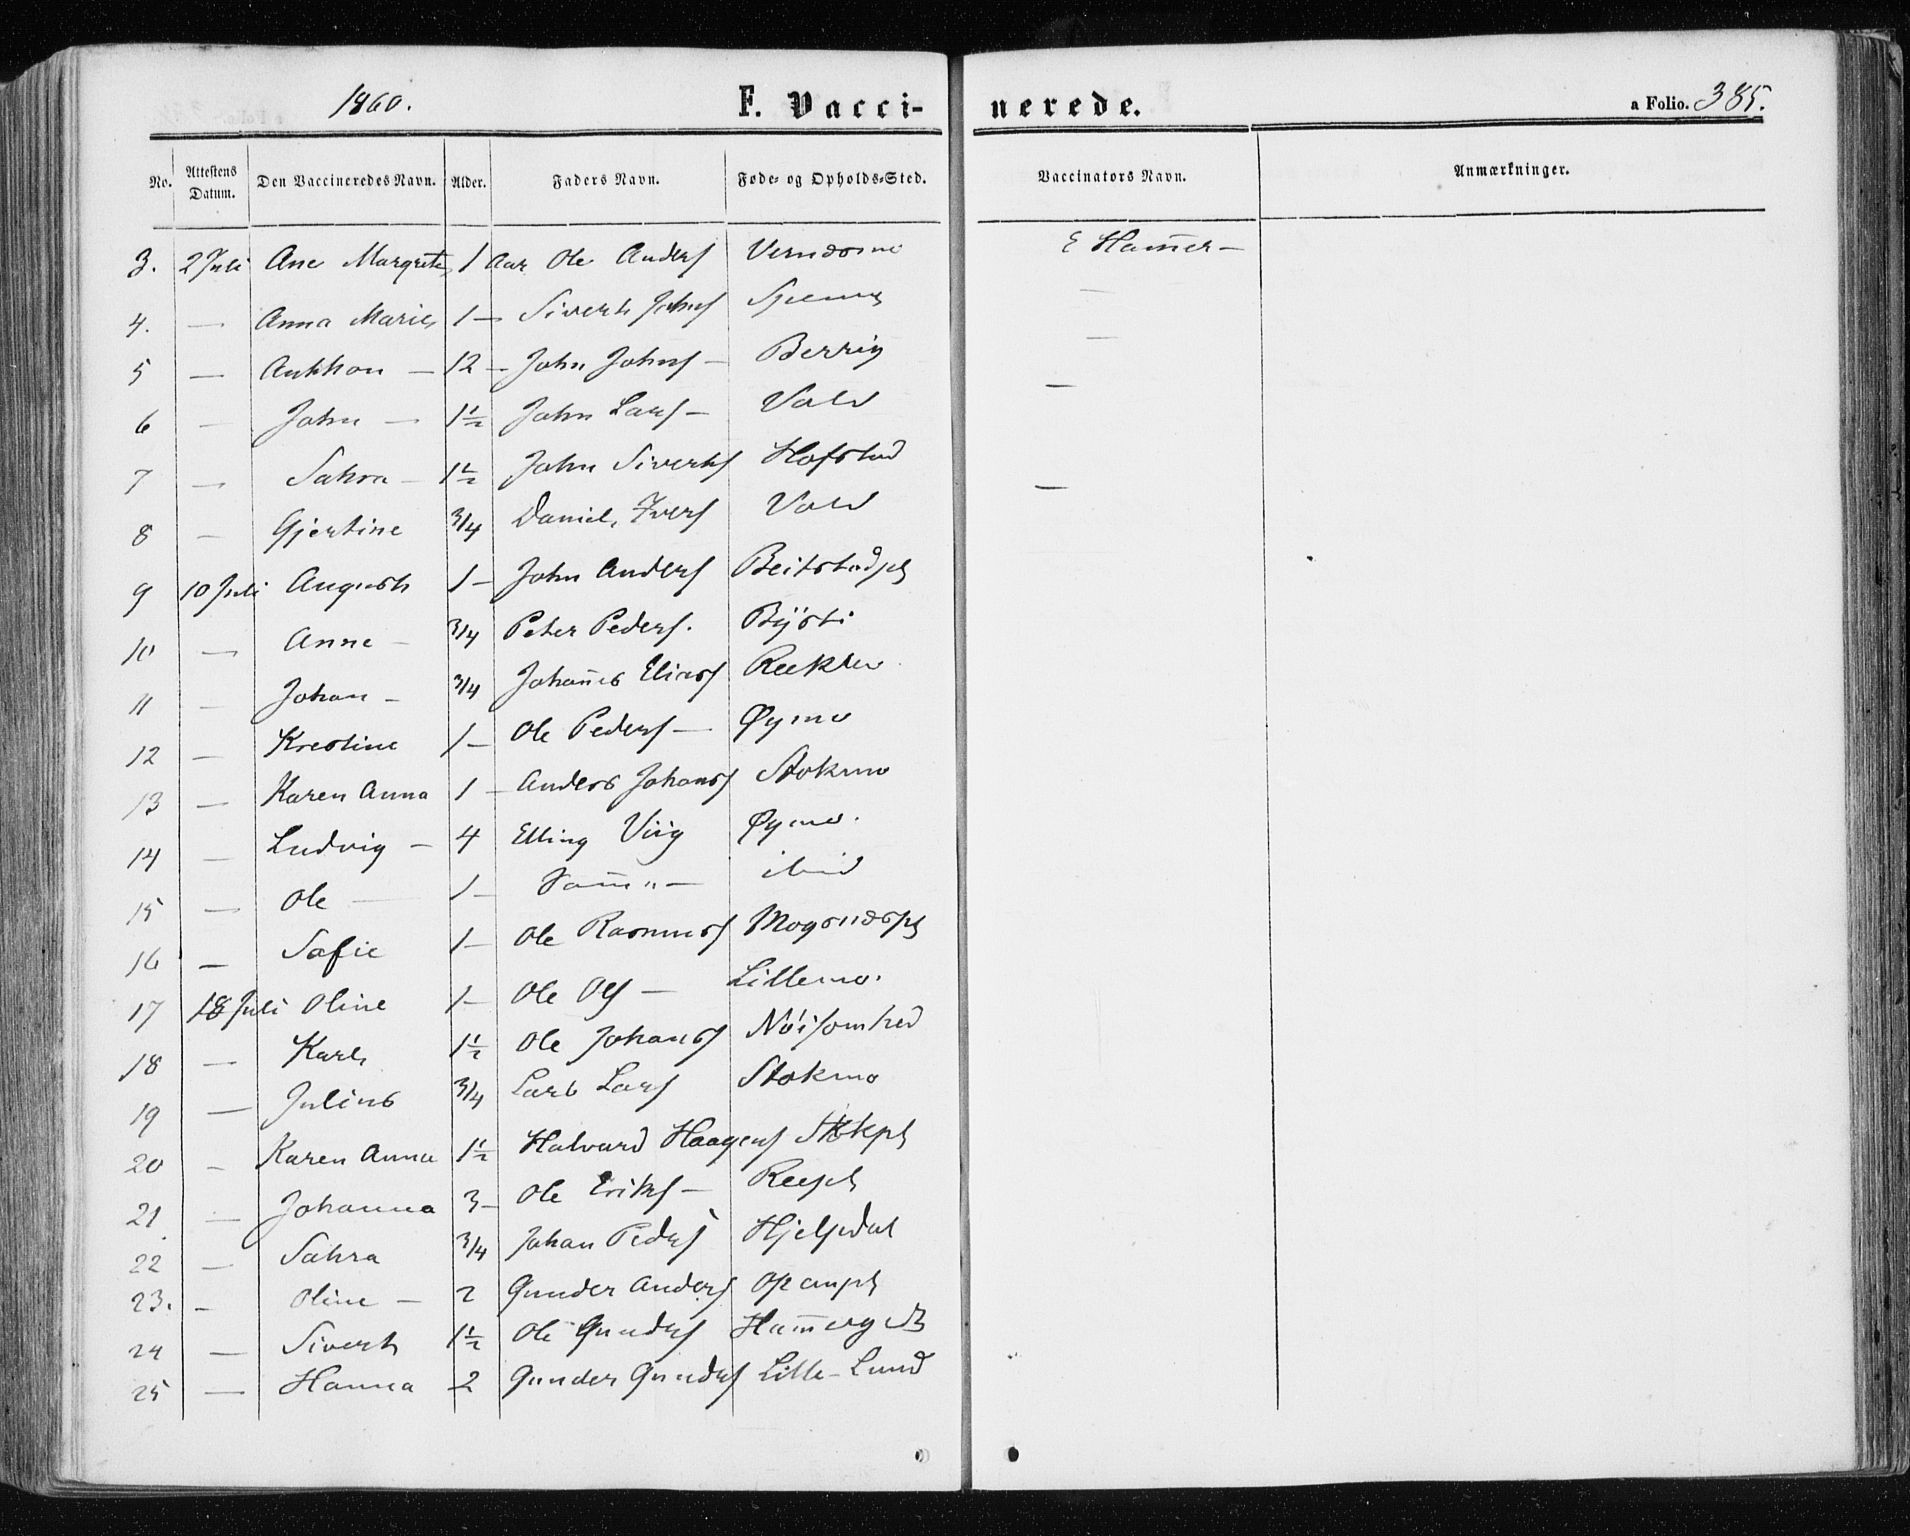 1860. F. Vacci- nerede. a Folio. 385.
No. Attestens Datum. Den Vaccineredes Navn. Alder. Faders Navn. Føde- og Opholds-Sted. Vaccinators Navn. Anmærkninger.
3. 2 Juli Ane Margrete 1 Aar Ole Anders E Ham̅er —
4. — Anna Marie 1 — Sivert Johns —
5 — 12 — John Johns — Berrig —
6 — John — 1½ John Lars — Vold —
7 — Sahra — 1½ John Siverts Hofstad —
8 — Gjertine 3/4 Daniel Ivers Vold
9 10 Juli August 1 — John Anders Beitstad
10 — Anne — 3/4 Peter Peders.
11 — Johan — 3/4 Johan̅es Elias
12 — Krestine 1 — Ole Peders — Øymo
13 — Karen Anna 1 — Anders Johans Stokmo
14 — Ludvig — 4 Elling Øymo.
15 — Ole — 1 — Sam̅ " — ibid
16 — Safie 1 — Ole Rasmus
17 18 Juli Oline 1 — Ole Ols — Lillemo.
18 — Karl 1½ Ole Johans Nöisomhed
19 — Julius 3/4 Lars Lars Stokmo
20 — Karen Anna 1½ Halvard Haagens
21 — Johanna 3 — Ole Eriks —
22 — Sahra 3/4 Johan Peders Hjelsedal
23. — Oline — 2 Gunder Anders
24 — Sivert 1½ Ole Gunders
25 — Hanna 2 Gunder Gunders Lille-Lund